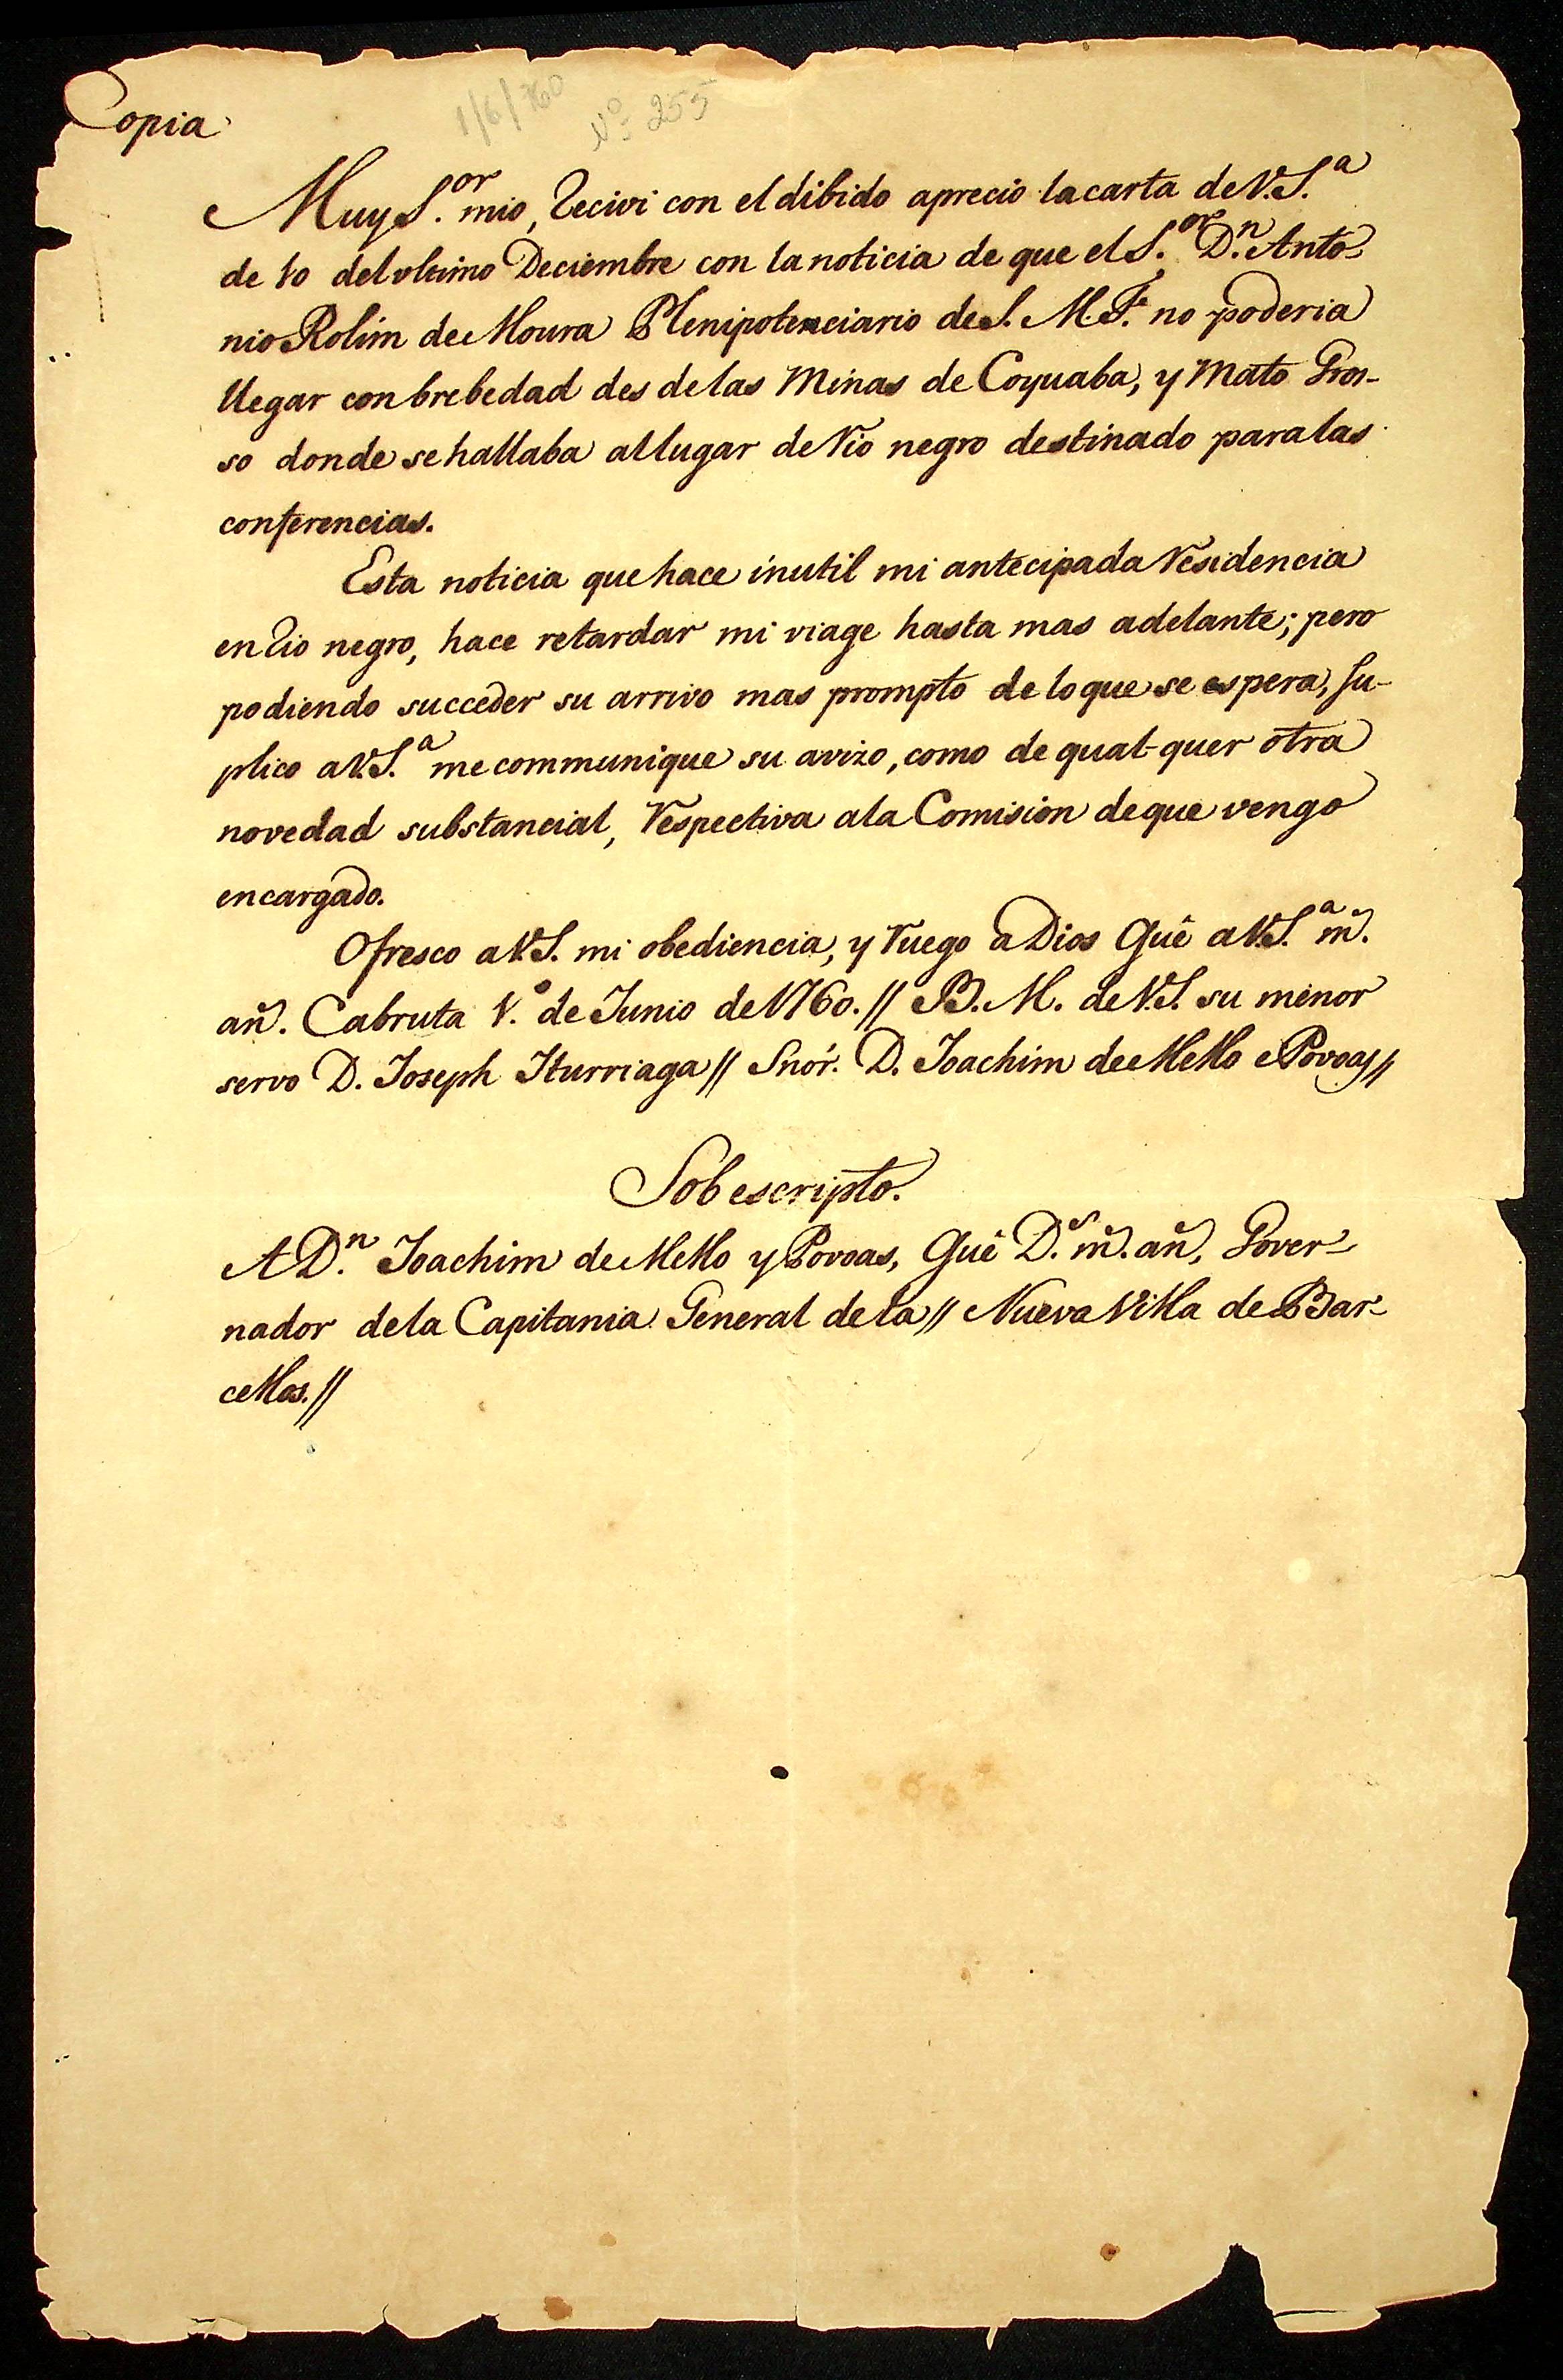 Copia
1/6/760
Nº 255
Muy S.or mio, Recivi con el dibido aprecio la carta de V.S.a
de 10 del ultimo Deciembre con la noticia de que el S.or D.n Anto-
nio Rolim de Moura Plenipotenciario de S. M. F. no poderia
llegar con brebedad des de las Minas de Coyuaba, y Mato Gros-
so donde se hallaba al lugar de Rio negro destinado para las
conferencias.
Esta noticia que hace inutil mi antecipada Residencia
en Rio negro, hace retardar mi viage hasta mas adelante; pero
podiendo succeder su arrivo mas prompto de lo que se espera, su-
plico a V.S.a me communique su avizo, como de qual-quer otra
novedad substancial, Respectiva a la Comision de que vengo
encargado.
Ofresco a V.S. mi obediencia, y Ruego a Dios Guê a V.S.a m̃.
añ. Cabruta 1.º de Junio de 1760. // B. M. de V.S. su menor
servo D. Joseph Iturriaga // Snór. D. Joachim de Mello e Povoas //
Sobescripto.
A D.n Joachim de Mello y Povoas, Guê D.s m̃. añ, Gover-
nador de la Capitania General de la // Nueva Villa de Bar-
cellos. //